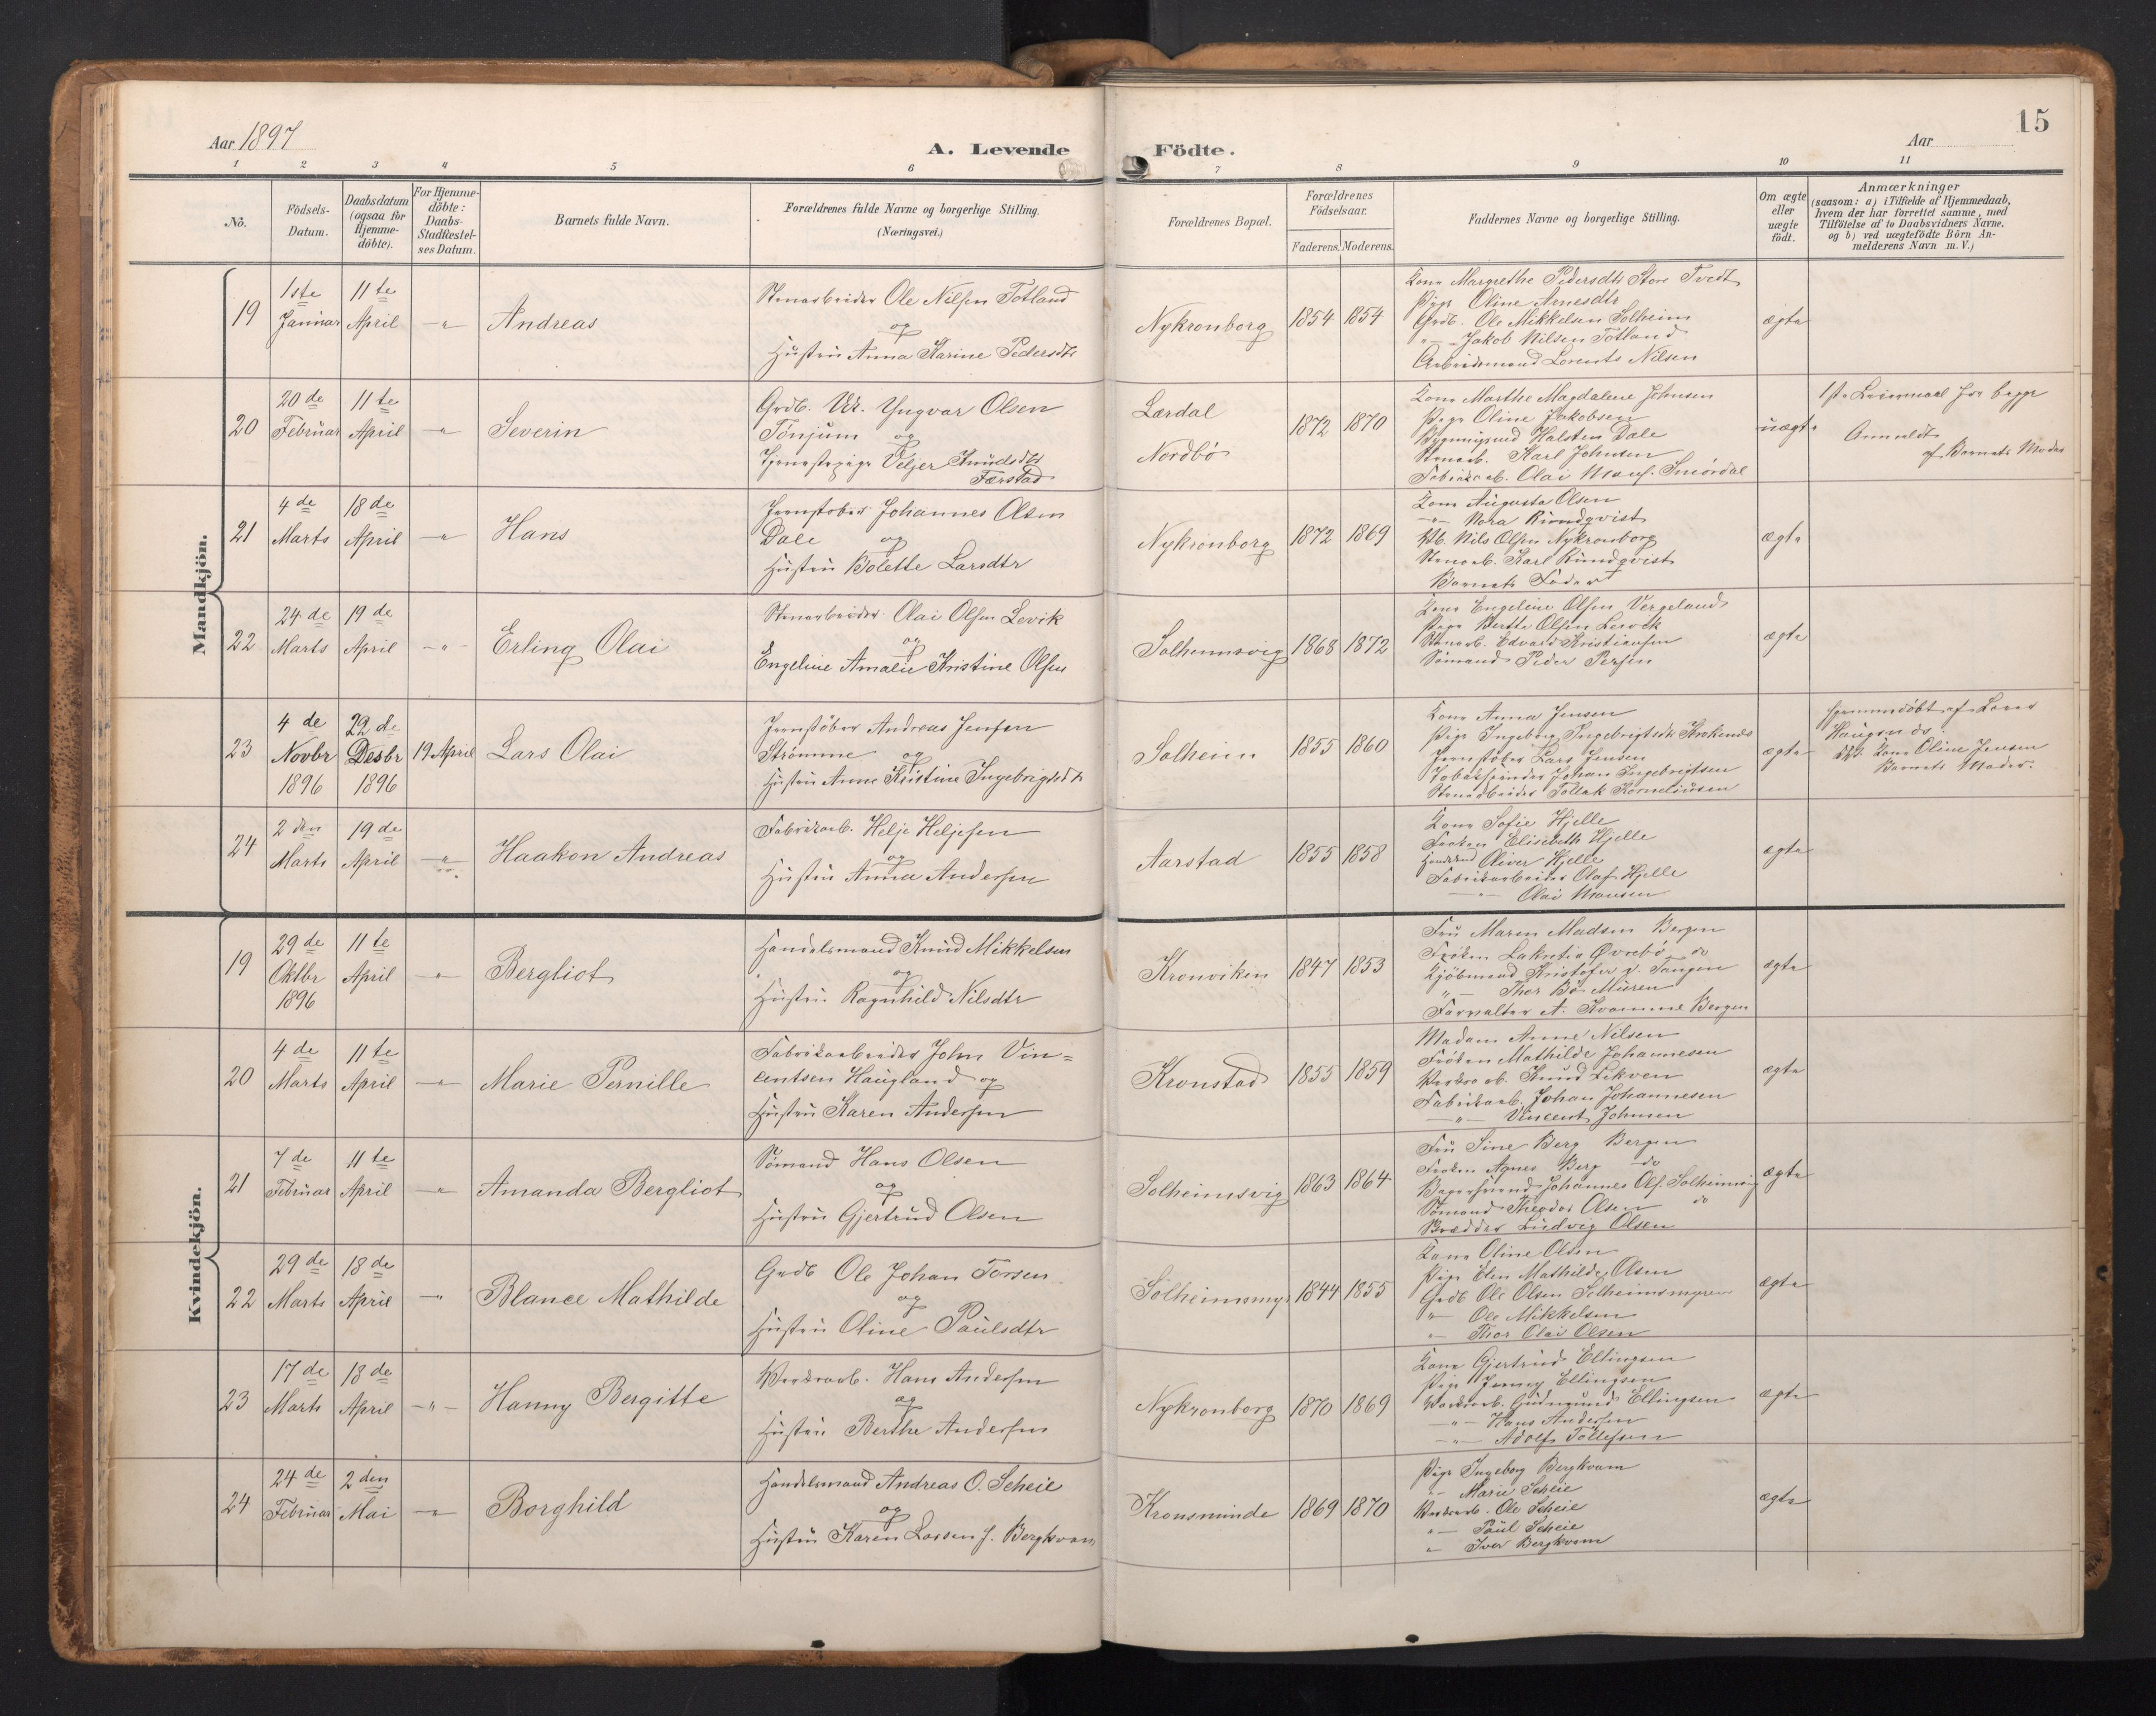 15
Aar 1897
A. Levende Födte.
Aar
1 2 3 4 5 6 7 8 9 10 11
No.
Födsels-Datum.
Daabsdatum (ogsaa for Hjemme-döbte).
For Hjemme-döbte: Daabs-Stadfæstel-ses Datum.
Barnets fulde Navn.
Forældrenes fulde Navne og borgerlige Stilling.
(Næringsvei.)
Forældrenes Bopæl.
Forældrenes Födselsaar.
Faderens. Moderens.
Faddernes Navne og borgerlige Stilling.
Om ægte eller uægte födt.
Anmærkninger
(saasom: a) i Tilfælde af Hjemmedaab,
hvem der har forrettet samme, med
Tilföielse af to Daabsvidners Navne,
og b) ved uægtefödte Börn An-
melderens Navn m. V.)
Mandkjön.
19
1ste Januar
11te April
-"-
Andreas
Stenarbeider Ole Nilsen Totland
og
Hustru Anna Karine Pedersdtr
Nykronborg
1854 1854
Kone Margrethe Pedersdtr Store Tvedt
Pige Oline Arnesdtr
Grdb. Ole Mikkelsen Solheim
-"- Jakob Nilsen Totland
Arbeidsmand Lorents Nilsen
ægte
20
20de Februar
11te April
-"-
Severin
Grdb. Ur. Yngvar Olsen
Tönjum og
Tjenestepige Veljer Knudsdtr
Færstad
Lærdal
Nordbö
1872 1870
Kone Marthe Magdalene Johnsen
Pige Oline Jakobsen
Halsten Dale
Stenarb. Karl Johnsen
Fabrikarb. Olai Monsf. Smördal
uægte
1ste Leiermaal for begge
Anmeldt
af Barnets Moder
21
4de Marts
18de April
-"-
Hans
Jernstöber Johannes Olsen
Dale og
Hustru Bolette Larsdtr
Nykronborg
1872 1869
Kone Augusta Olsen
-"- Nora Rundqvist
Nils Olsen Nykronborg
Stenarb. Karl Rundqvist
Barnets Fader
ægte
22
24de Marts
19de April
-"-
Erling Olai
Stenarbeider Olai Olsen Levik
og
Engeline Amalie Kristine Olsen
Solheimsvig
1868 1872
Kone Engeline Olsen Vergeland
Pige Berthe Olsen Levik
Stenarb. Edvard Kristiansen
Sömand Peder Persen
ægte
23
4de Novbr 1896
22de Desbr 1896
19 April
Lars Olai
Jernstöber Andreas Jensen
Strömme og
Hustru Anne Kristine Ingebrigtsdtr
Solheim
1855 1860
Kone Anna Jensen
Pige Ingeborg Ingebrigtsdtr
Jernstöber Lars Jensen
Johan Ingebrigtsen
Stenarbeider Tollak Korneliusen
ægte
Hjemmedöbt af
Kone Oline Jensen
Barnets Moder.
24
2den Marts
19de April
-"-
Haakon Andreas
Fabrikarb. Helje Heljesen
og
Hustru Anna Andersen
Aarstad
1855 1858
Kone Sofie Hjelle
Fröken Elisebeth Hjelle
Oliver Hjelle
Fabrikarbeider Olaf Hjelle
-"- Olai Monsen
ægte
Kvindekjön.
19
29de Oktbr 1896
11te April
-"-
Bergliot
Handelsmand Knud Mikkelsen
og
Hustru Ragnhild Nilsdtr
Kronviken
1847 1853
Fru Maren Madsen Bergen
Fröken Lakretia Övrebö do
Kjöbmand Kristofer d. Tangen
"- Thor Bö Müren
Forvalter A. Kvamme Bergen
ægte
20
4de Marts
11te April
-"-
Marie Pernille
Fabrikarbeider John Vin=
centsen Haugland og
Hustru Karen Andersen
Kronstad
1855 1859
Madam Anne Nilsen
Fröken Mathilde Johannesen
Værksarb. Knud Likven
Fabrikarb. Johan Johannesen
-"- Vincent Johnsen
ægte
21
7de Februar
11te April
-"-
Amanda Bergliot
Sömand Hans Olsen
og
Hustru Gjertrud Olsen
Solheimsvig
1863 1864
Fru Sine Berg Bergen
Fröken Agnes Berg do
Bagersvend Johannes Ols. Solheimsvig
Sömand Theodor Olsen do
Ludvig Olsen
ægte
22
29de Marts
18de April
-"-
Blance Mathilde
Grdb Ole Johan Torsen
og
Hustru Oline Paulsdtr
Solheimsmyr
1844 1855
Kone Oline Olsen
Pige Elen Mathilde Olsen
Grdb Ole Olsen Solheimsmyren
"- Ole Mikkelsen
" Thor Olai Olsen
ægte
23
17de Marts
18de April
-"-
Hanny Bergitte
Værksarb. Hans Andersen
og
Hustru Berthe Andersen
Nykronborg
1870 1869
Kone Gjertrud Ellingsen
Pige Jenny Ellingsen
Værksarb. Gudmund Ellingsen
-"- Hans Andersen
-"- Adolf Tollefsen
ægte
24
24de Februar
2den Mai
-"-
Borghild
Handelsmand Andreas O. Scheie
og
Hustru Karen Larsen f. Bergkvam
Kronsminde
1869 1870
Pige Ingeborg Bergkvam
"- Marie Scheie
Værksarb. Ole Scheie
"- Paul Scheie
" Iver Bergkvam
ægte